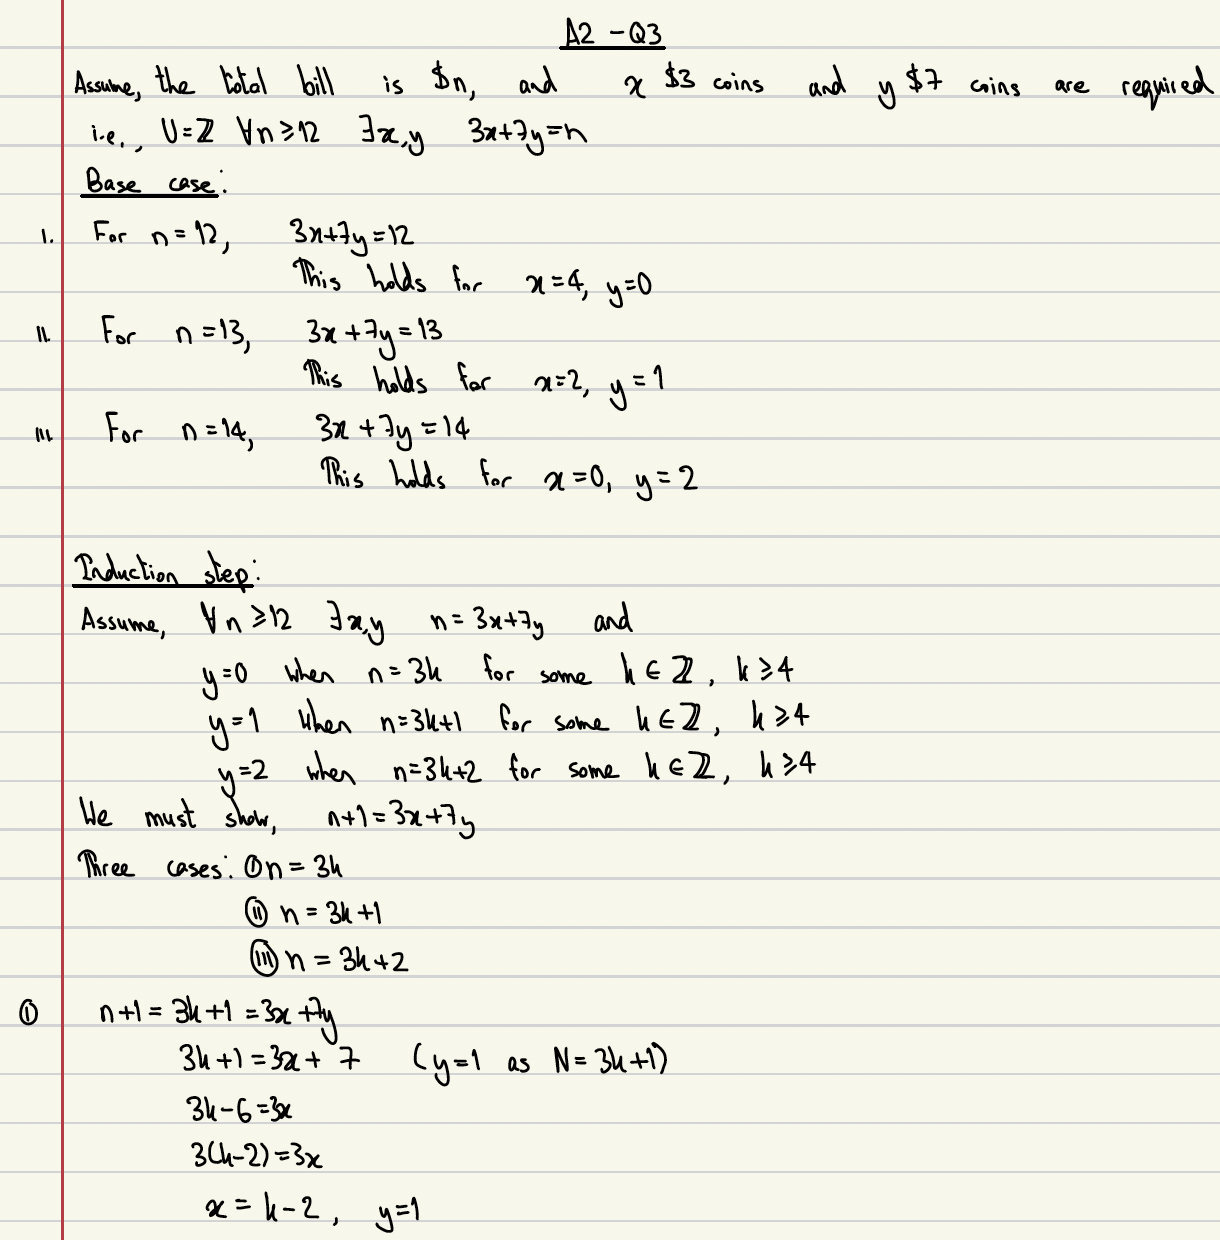 A2 - Q3
Assume, the total bill is $n, and x $3 coins and y $7 coins are required
i.e., U=ℤ ∀n≥12 ∃x,y 3x+7y=n
Base case:
I. For n=12, 3x+7y=12
This holds for x=4, y=0
II. For n=13, 3x+7y=13
This holds for x=2, y=1
III. For n=14, 3x+7y=14
This holds for x=0, y=2
Induction step:
Assume, ∀n≥12 ∃x,y n=3x+7y and
y=0 when n=3k for some k∈ℤ, k≥4
y=1 when n=3k+1 for some k∈ℤ, k≥4
y=2 when n=3k+2 for some k∈ℤ, k≥4
We must show, n+1=3x+7y
Three cases: Ⓘ n=3k
ⓘⓘ n=3k+1
ⓘⓘⓘ n=3k+2
Ⓘ n+1=3k+1=3x+7y
3k+1=3x+7 (y=1 as N=3k+1)
3k-6=3x
3(k-2)=3x
x=k-2, y=1